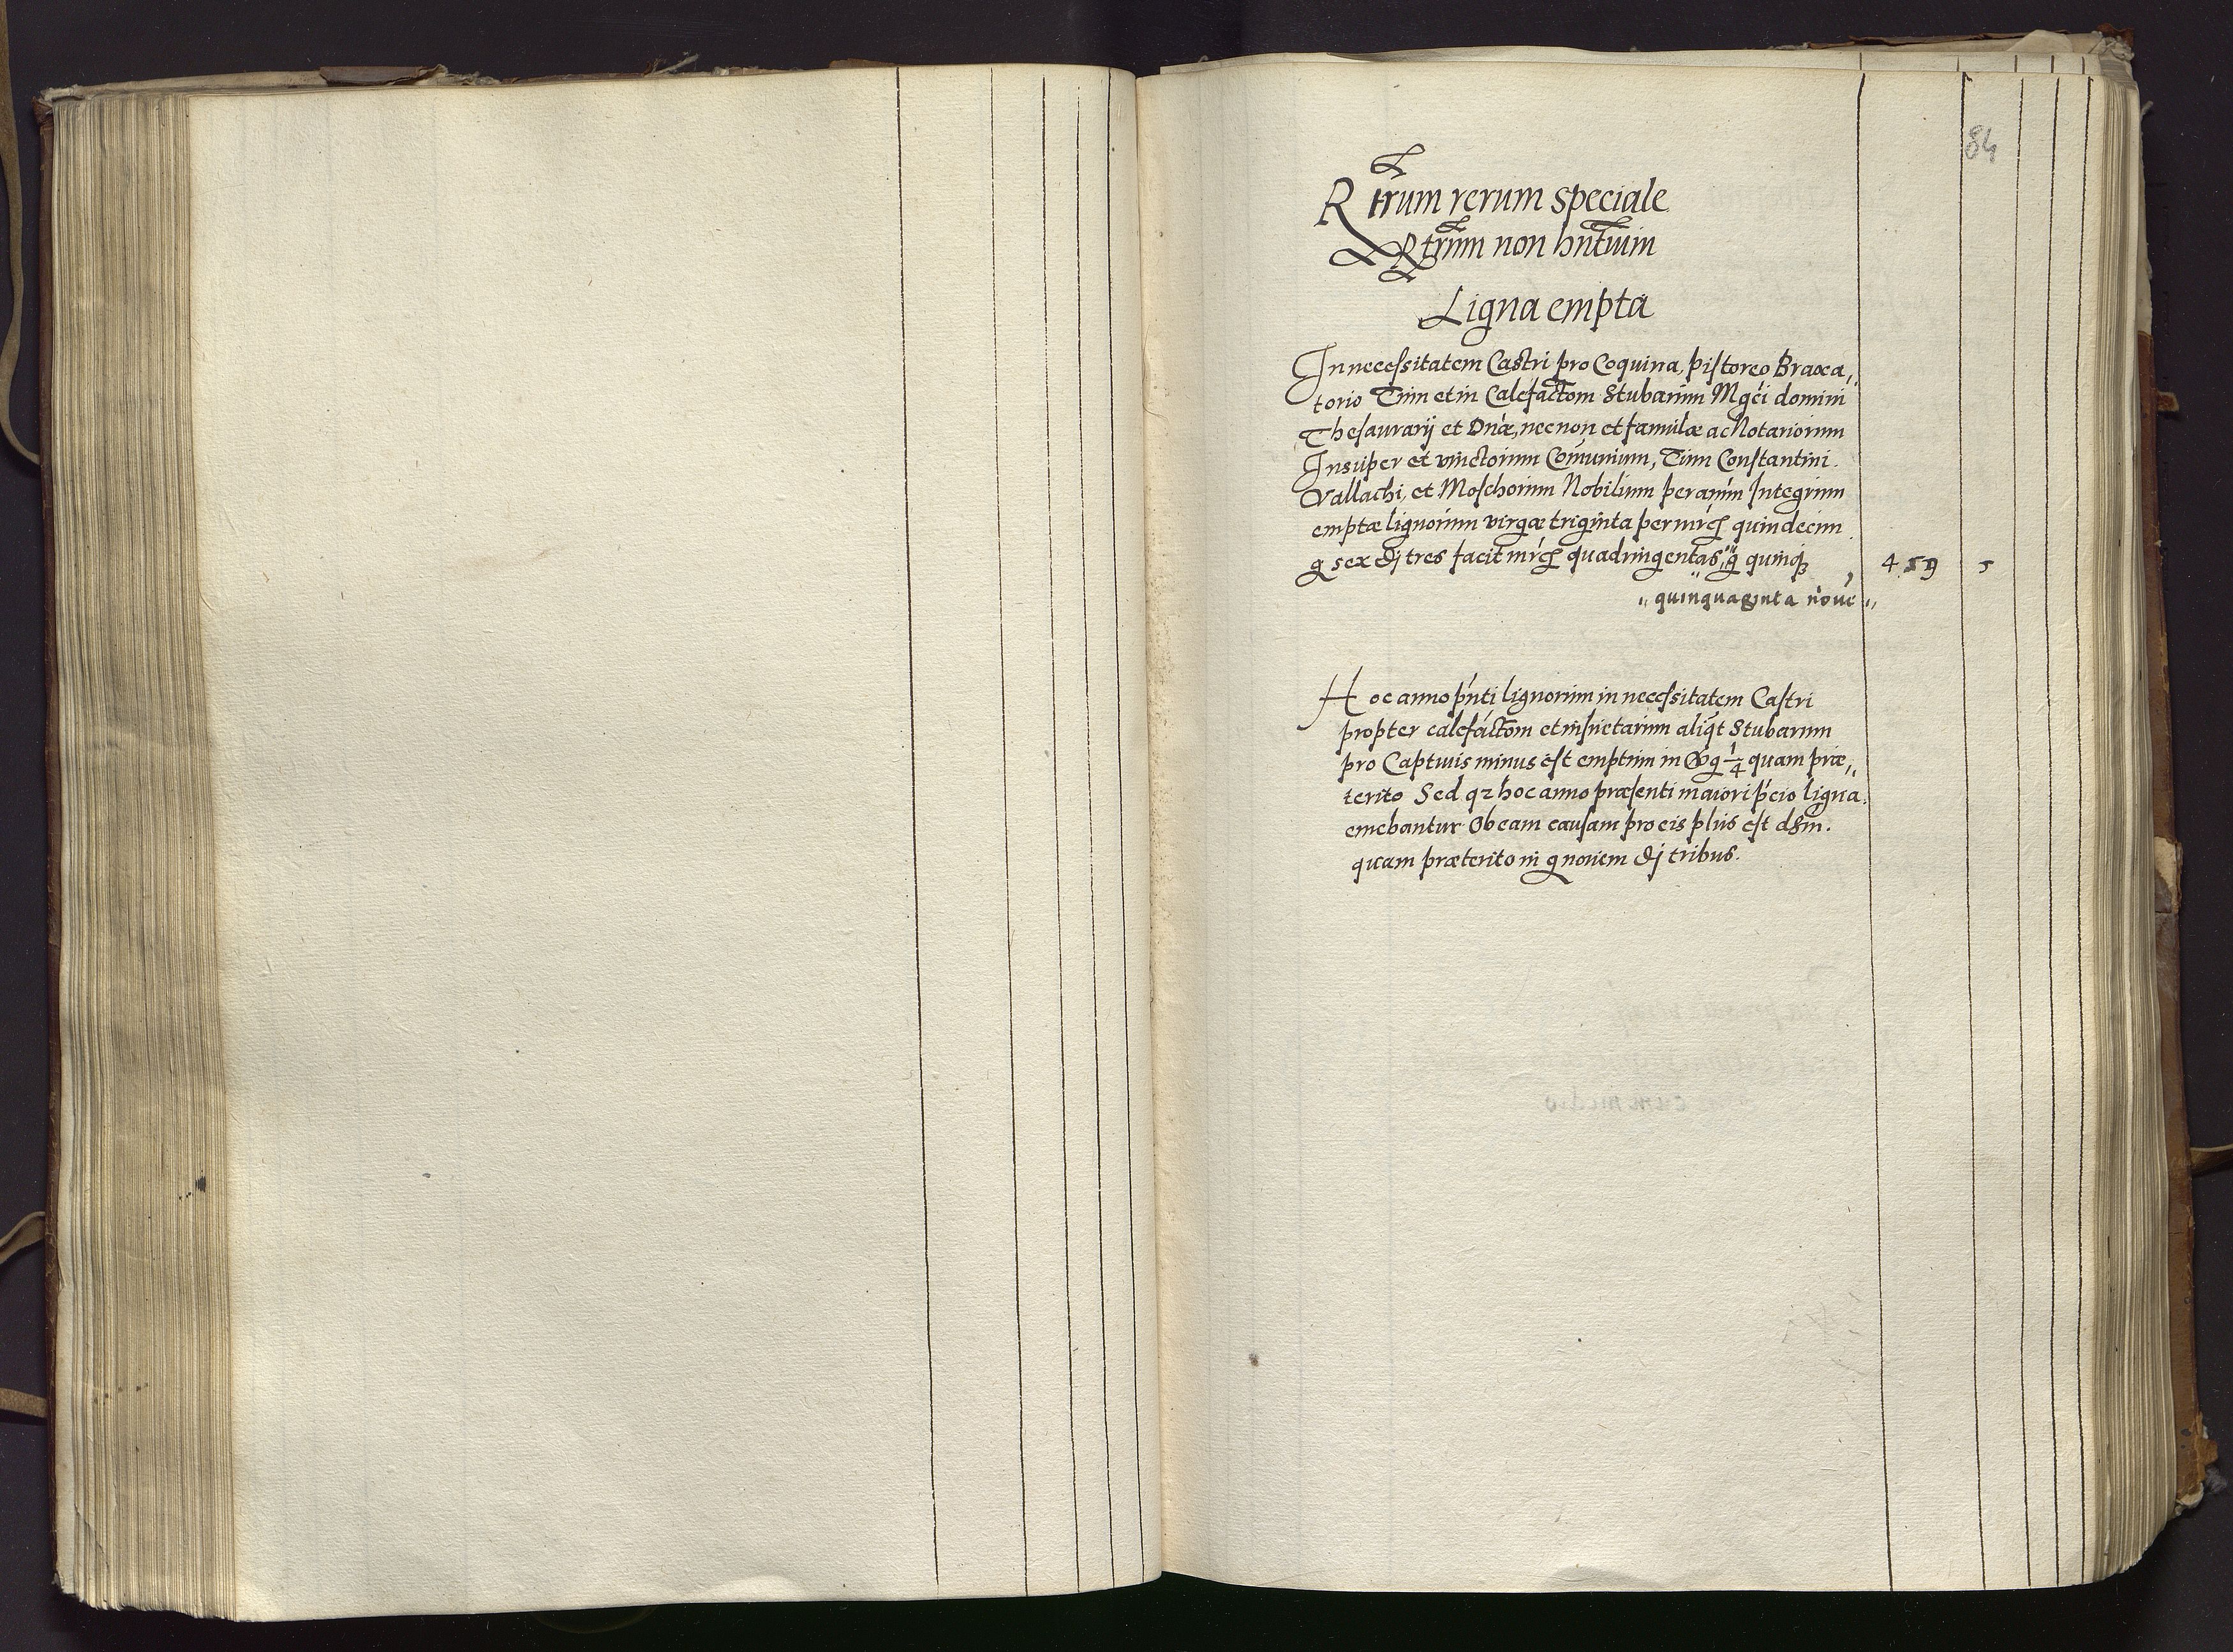 84
Rtrum rerum speciale
Rtrum non hntium
Ligna empta
In necessitatem Castri pro Coquina, pistoreo Braxa„
torio Tum et in Calefactom Stubarum Mgci domini
Thesaurarij et Dnæ, necnon et famulæ ac Notariorum
Insuper et vinctorum Comunium, Tum Constantini
Vallachi, et Moschorum Nobilium per anum Integrum
emptæ lignorum virgæ triginta per mrcs quindecim
g sex dj tres facit mrcs quadringentas „ g quinq3 459 5
„ quinquaginta noue „
Hoc anno pnti lignorum in necessitatem Castri
propter calefactom etinsuetarum aliqt Stubarum
pro Captiuis minus est emptum in Vg 1/4 quam præ„
terito Sed qz hoc anno præsenti maiori pcio ligna
emebantur Ob eam causam pro eis plus est dsm.
quam præterito in g nouem dj tribus.